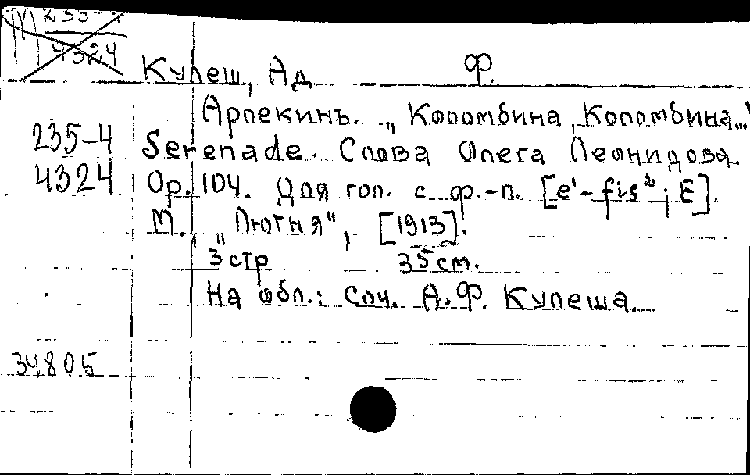 235-
4324
Кулеш, Ад. Ф.
Арлекинъ. „Коломбина, Коломбина..."
235-4 Serenade. Слова Олега Леонидова.
4324 Op. 104. Для гол. с ф.-п. [e¹-fis²; E].
М. „Лютня", [1913].
3 стр 35 см.
На обл.: Соч. А.Ф. Кулеша.
34805